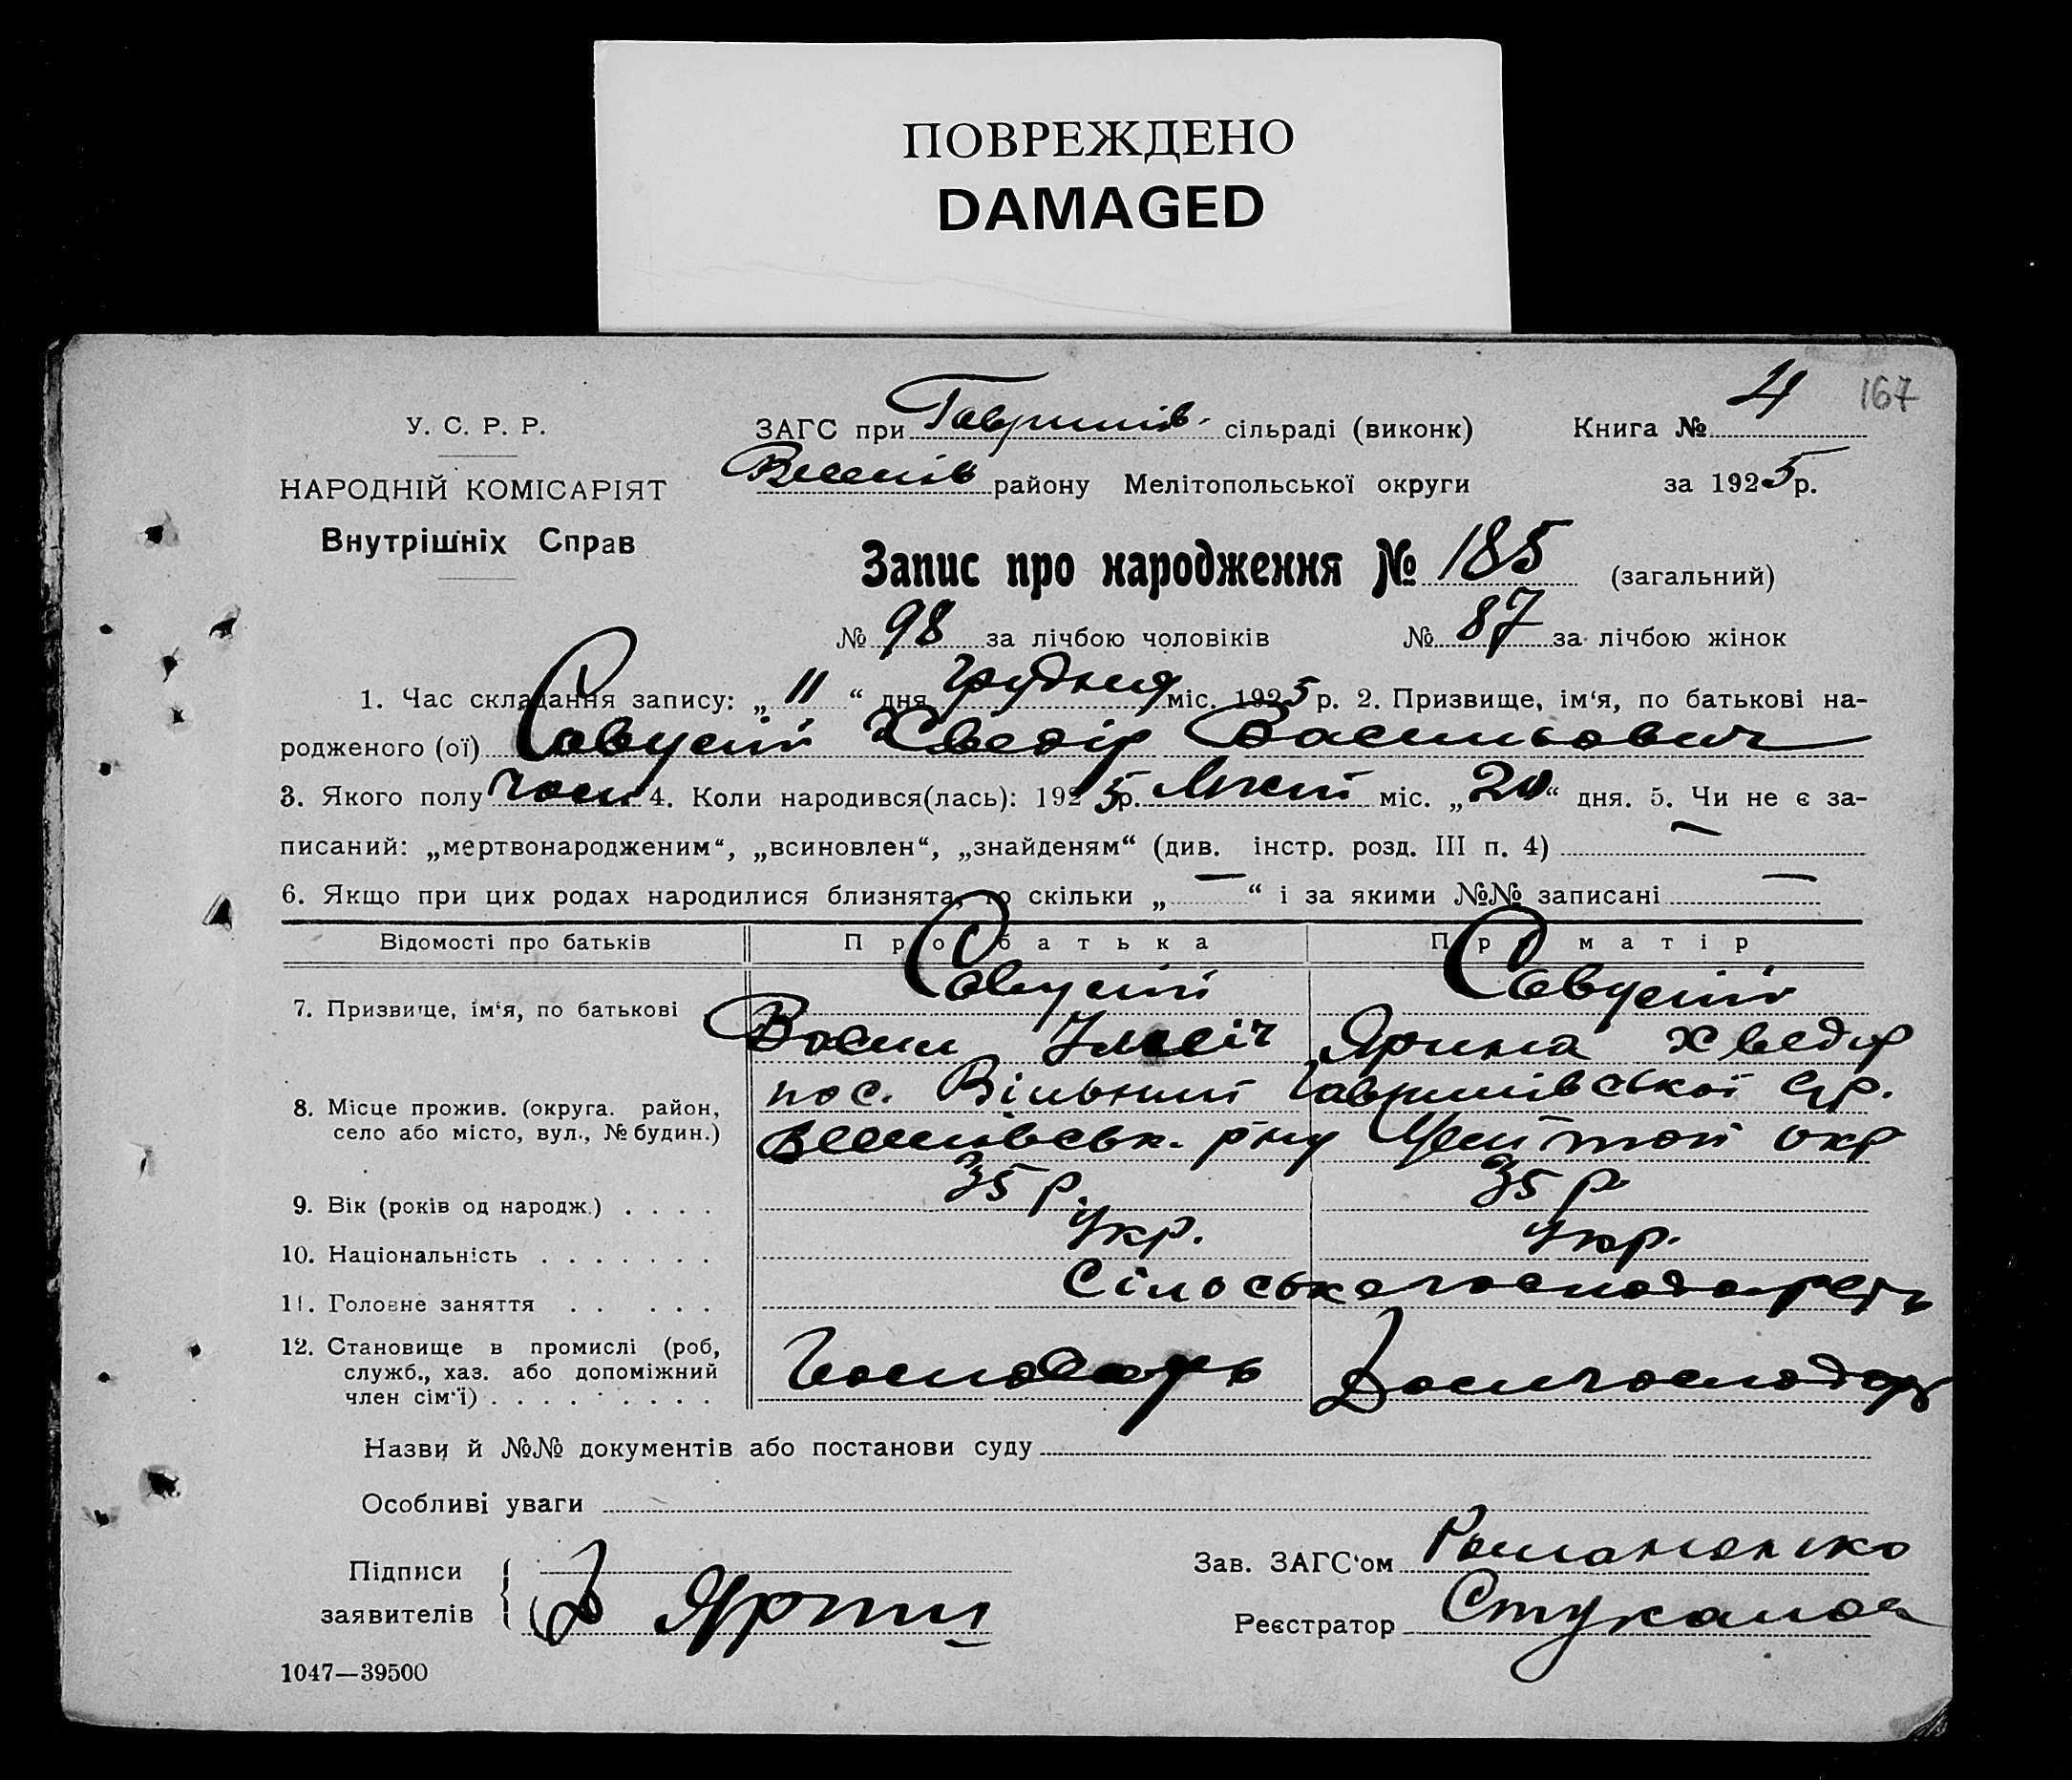 ПОВРЕЖДЕНО
DAMAGED
4 167
У. С. Р. Р. ЗАГС при Гаврилів. сільраді (виконк) Книга №
НАРОДНІЙ КОМІСАРІЯТ району Мелітопольської округи за 1925 р.
Внутрішніх Справ
Запис про народження № 185 (загальний)
№ 98 за лічбою чоловіків № 87 за лічбою жінок
1. Час складання запису: „ 11 “ дня Грудня міс. 1925 р. 2. Призвище, ім‘я, по батькові на-
родженого (ої) Хведір Васильович
3. Якого полу чол. 4. Коли народився(лась): 1925 р. міс. „ 20 “ дня. 5. Чи не є за-
писаний: „мертвонародженим“, „всиновлен“, „знайденям“ (див. інстр. розд. III п. 4) —
6. Якщо при цих родах народилися близнята, то скільки „ — “ і за якими №№ записані —
Відомості про батьків Про батька Про матір
7. Призвище, ім‘я, по батькові
Васил Ілліч Ярина Хведір
8. Місце прожив. (округа. район, пос. Вільний Гаврилівської с/р.
село або місто, вул., № будин.) р-ну окр
9. Вік (років од народж.) . . . . 35 р. 35 р.
10. Національність . . . . . . . Укр. Укр.
11. Головне заняття . . . . . Сільське господарств
12. Становище в промислі (роб,
служб., хаз. або допоміжний Господарь Домогосподар
член сім‘ї) . . . . . . . . .
Назви й №№ документів або постанови суду
Особливі уваги
Підписи Зав. ЗАГС‘ом Романенко
заявителів Реєстратор Стукалов
1047—39500